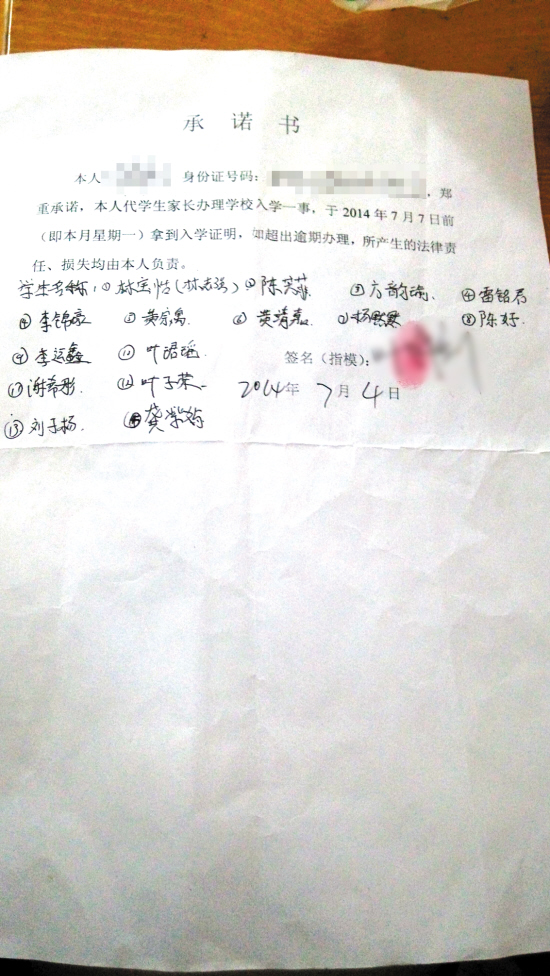 承诺书
本人 身份证号码： ，郑
重承诺，本人代学生家长办理学校入学一事，于2014年7月7日前
（即本月星期一）拿到入学证明，如超出逾期办理，所产生的法律责
任、损失均由本人负责。
学生名称：① 林宝怡（林志强）② 陈 ③ 方韵 ④ 雷铭君
④ 李锦豪 ⑤ 黄 ⑥ 黄靖嘉 ⑦ 杨思思 ⑧ 陈妤
⑨ 李运鑫 ⑩ 叶
签名（指模）：
⑪ 谢希彤 ⑫ 叶子荣
2014年 7月 4日
⑬ 刘子扬 ⑭ 龚紫